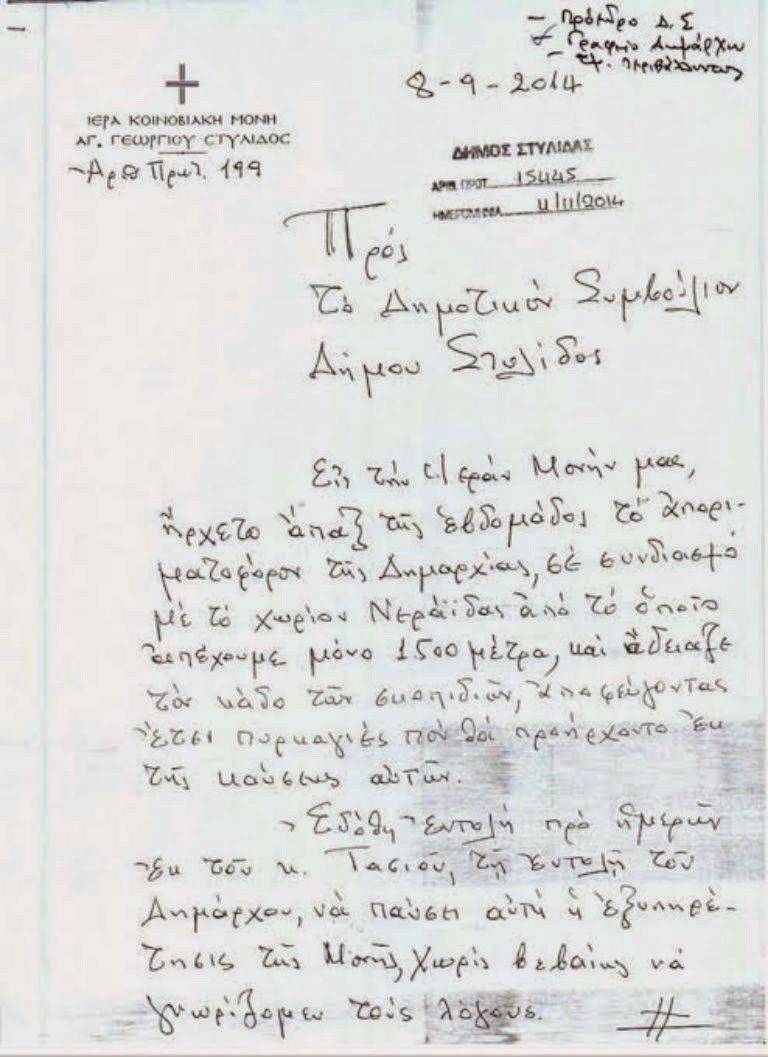 - Πρόεδρο Δ.Σ
- Γραφείο Δημάρχου
- Τμ. Περιβάλλοντος
8-9-2014
ΙΕΡΑ ΚΟΙΝΟΒΙΑΚΗ ΜΟΝΗ
ΑΓ. ΓΕΩΡΓΙΟΥ ΣΤΥΛΙΔΟΣ
Ἀρ Πρωτ. 199
ΔΗΜΟΣ ΣΤΥΛΙΔΑΣ
ΑΡΙΘ. ΠΡΩΤ. 15445
ΗΜΕΡΟΜΗΝΙΑ 4/11/2014
Πρός
τὸ Δημοτικὸν Συμβούλιον
Δήμου Στυλίδος
Εἰς τὴν Ἱερὰν Μονήν μας,
ἤρχετο ἅπαξ τῆς ἑβδομάδος τὸ ἀπορι-
ματοφόρον τῆς Δημαρχίας, σὲ συνδιασμό
μὲ τὸ χωρίον Νεράϊδας ἀπὸ τὸ ὁποῖο
ἀπέχουμε μόνο 1500 μέτρα, καὶ ἄδειαζε
τὸν κάδο τῶν σκοπιδιῶν, ἀποφεύγοντας
ἔτσι πυρκαγιές ποὺ θὰ προήρχοντο ἐκ
τῆς καύσεως αὐτῶν.
Ἐδόθη ἐντολή πρὸ ἡμερῶν
ἐκ τοῦ κ. Τασιοῦ, τῇ ἐντολῇ τοῦ
Δημάρχου, νὰ παύσει αὐτὴ ἡ ἐξυπηρέ-
τησις τῆς Μονῆς, χωρίς βεβαίως νὰ
γνωρίζομεν τοὺς λόγους. //